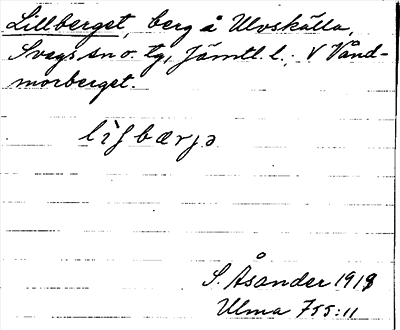 Lillberget, berg å Ulvskälla,
Svegs sn o. tg, Jämtl. l.; V Vånd-
morberget.
S. Åsander 1919
Ulma 755:11